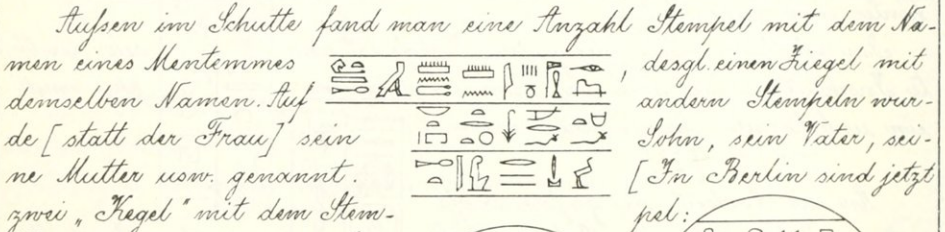 Aussen im Schutte fand man eine Anzahl Stempel mit dem Na-
men eines Mentemmes , desgl. einen Ziegel mit
demselben Namen. Auf andern Stempeln wur-
de [statt der Frau] sein Sohn, sein Vater, sei-
ne Mutter usw. genannt. [In Berlin sind jetzt
zwei „Kegel" mit dem Stem- pel: